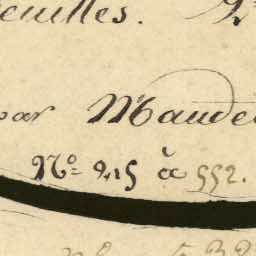 euilles.
par Maude
Nº 215 à 552.